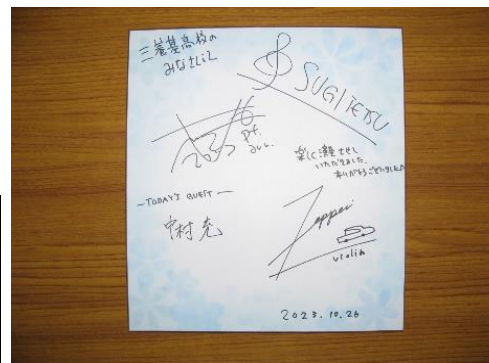 三養基高校の
みなさんに
SUGITETSU
pf.
楽しく演奏させて
いただきました。
ありがとうございました
—TODAY'S GUEST—
中村充
Zeppei
violin
2023.10.26